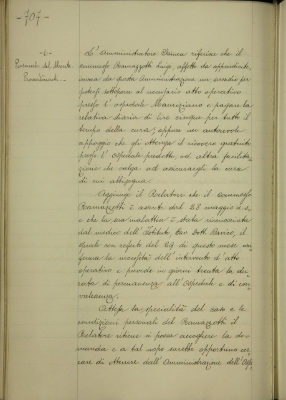 - 707 -
- 6 -
Personale del Monte.
Provvedimenti -
L'Amministratore riferisce che il
Luigi, affetto da appendicite,
da questa Amministrazione un sussidio per
potersi sottoporre al necessario atto operativo
presso l'ospedale Mauriziano e pagare la
relativa diaria di Lire cinque per tutto il
tempo della cura; oppure un autorevole
appoggio che gli ottenga il ricovero gratuito
presso l'Ospedale predetto od altra facilita-
zione che valga ad assicurargli la cura
di cui abbisogna.
Aggiunge il Relatore che il
è assente dal 25 maggio u. s.
e che la sua malattia è stata riconosciuta
dal medico dell'Istituto, Cav. Dott. il
quale con referto del 29 di questo mese con-
ferma la necessità dell'intervento d'atto
operativo e prevede in giorni trenta la du-
rata di permanenza all'Ospedale e di con-
valescenza.
Attesa la specialità del caso e le
condizioni personali del il
Relatore ritiene si possa accogliere la do-
manda e a tal uopo sarebbe opportuno cer-
care di ottenere dall'Amministrazione dell'Ospe